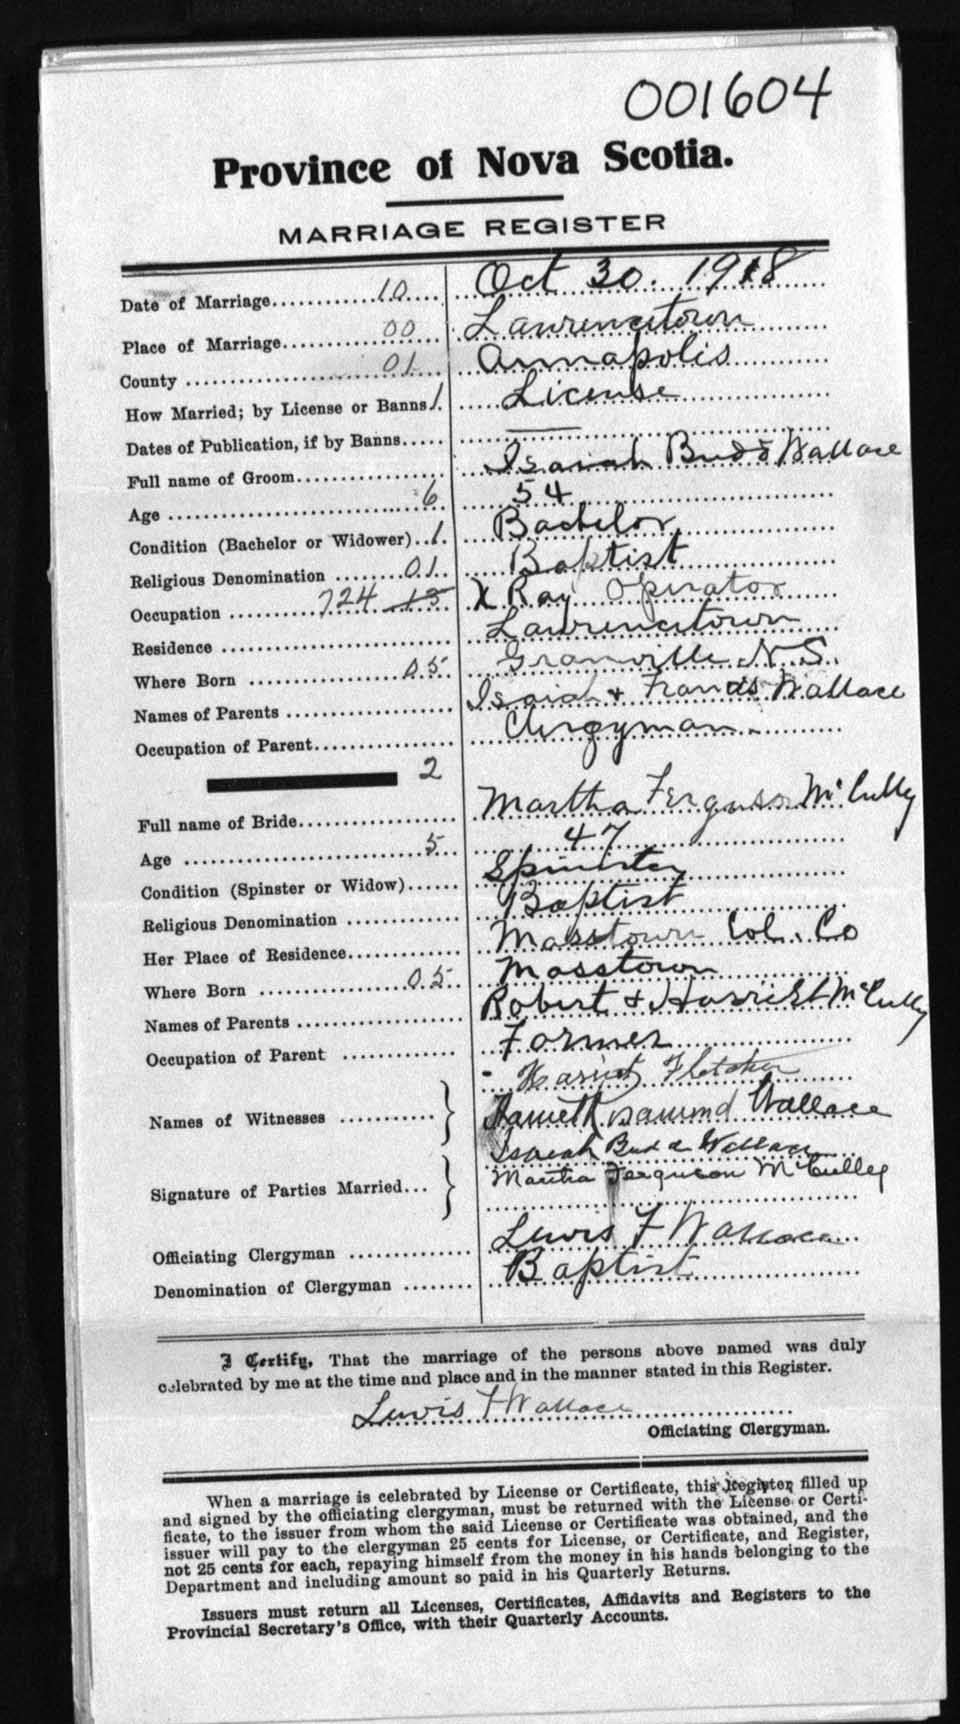 001604
Province of Nova Scotia.
MARRIAGE REGISTER
Date of Marriage 10 Oct 30. 1918
Place of Marriage 00 Lawrencetown
County 01 Annapolis
How Married; by License or Banns 1. License
Dates of Publication, if by Banns
Full name of Groom Isaiah Budd Wallace
Age 6 54
Condition (Bachelor or Widower) 1. Bachelor
Religious Denomination 01 Baptist
Occupation 724 15 X Ray Operator
Residence Lawrencetown
Where Born 05 Granville N.S.
Names of Parents Isaiah & Francis Wallace
Occupation of Parent Clergyman.
2
Full name of Bride Martha Ferguson McCully
Age 5 47
Condition (Spinster or Widow) Spinster
Religious Denomination Baptist
Her Place of Residence Masstown Col. Co
Where Born 05 Masstown
Names of Parents Robert & Harriet McCully
Occupation of Parent Farmer
Harriet Fletcher
Names of Witnesses } Wallace
Isaiah Budd Wallace
Signature of Parties Married } Martha Ferguson McCulley
Officiating Clergyman Lewis F Wallace
Denomination of Clergyman Baptist
I Certify, That the marriage of the persons above named was duly
celebrated by me at the time and place and in the manner stated in this Register.
Lewis F Wallace
Officiating Clergyman.
When a marriage is celebrated by License or Certificate, this Register filled up
and signed by the officiating clergyman, must be returned with the License or Certi-
ficate, to the issuer from whom the said License or Certificate was obtained, and the
issuer will pay to the clergyman 25 cents for License, or Certificate, and Register,
not 25 cents for each, repaying himself from the money in his hands belonging to the
Department and including amount so paid in his Quarterly Returns.
Issuers must return all Licenses, Certificates, Affidavits and Registers to the
Provincial Secretary's Office, with their Quarterly Accounts.